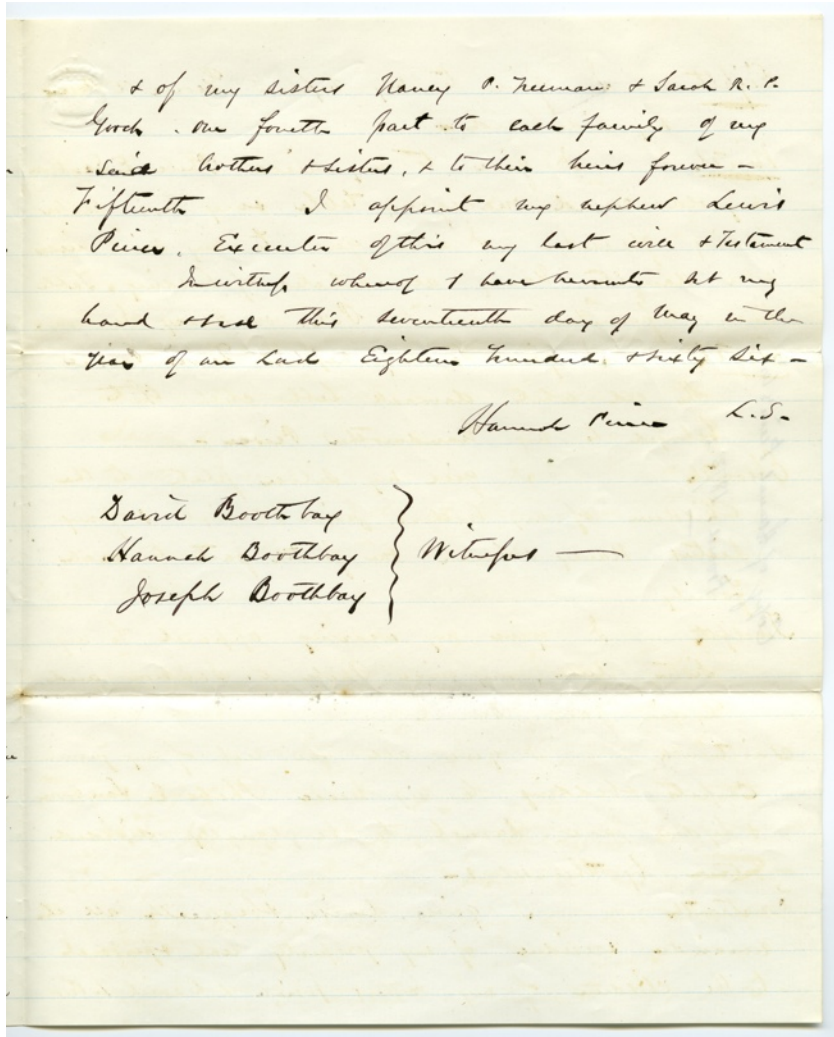 & of my sisters Nancy P. Freeman & Sarah R. P.
Gooch one fourth part to each family of my
said brothers & sisters, & to their heirs forever –
Fifteenth I appoint my nephew Lewis
Executor of this my last will & Testament
In witness whereof I have hereunto set my
hand & seal this seventeenth day of May in the
year of our Lord Eighteen hundred & sixty six –
Hannah L.S.
David Boothbay
Hannah Boothbay
Joseph Boothbay
Witnesses —